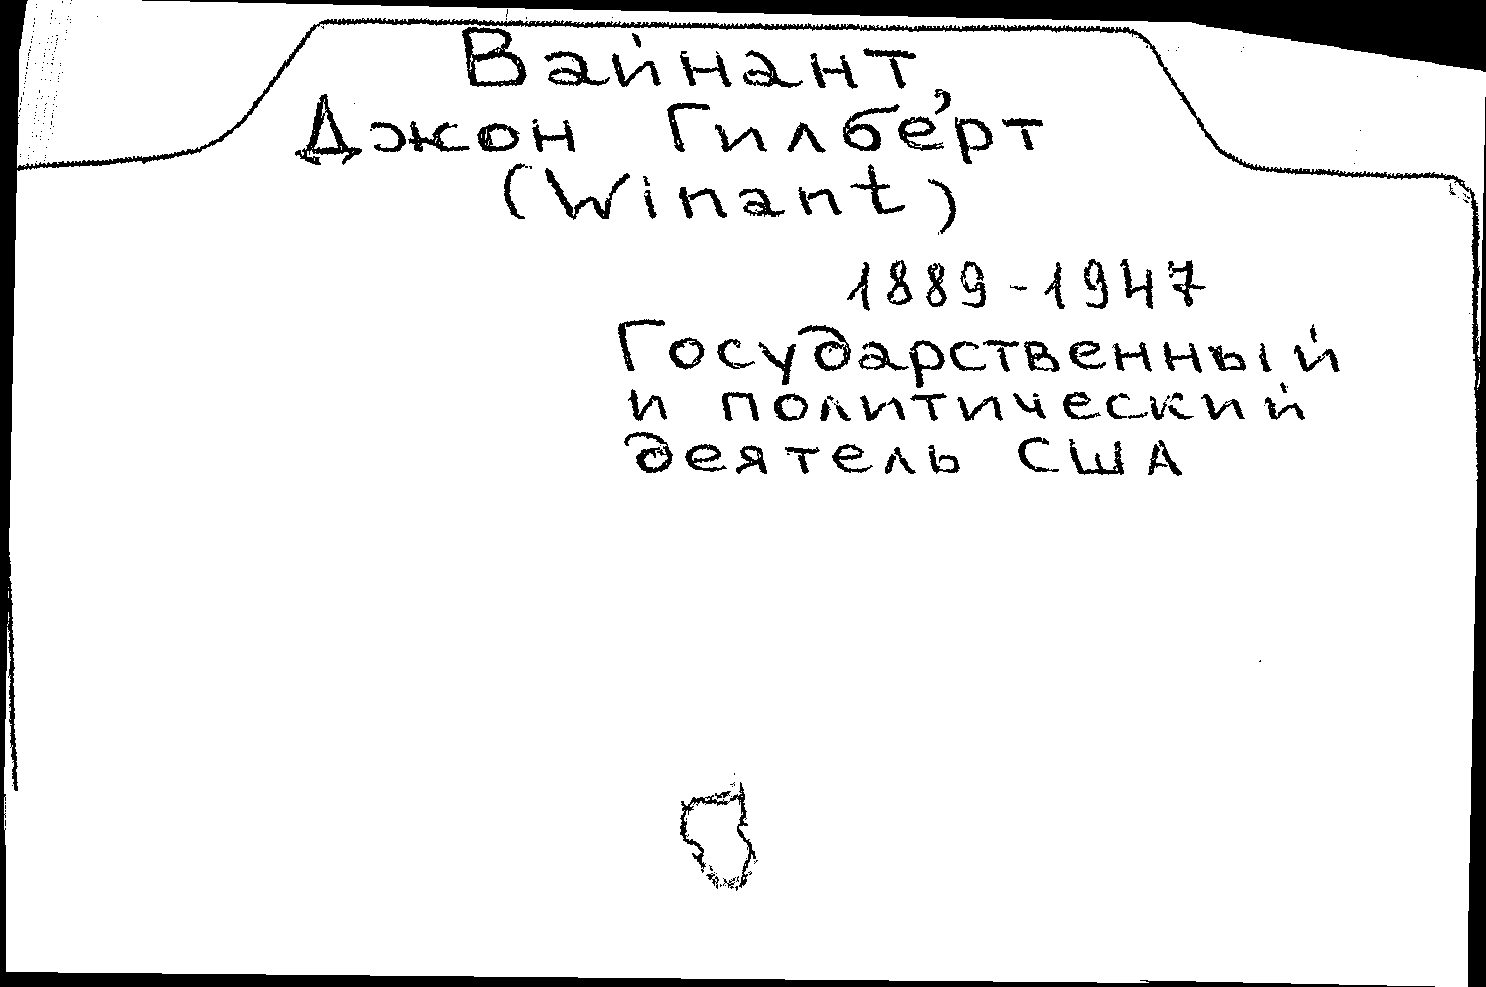 Вайнант,
Джон Гилберт
(Winant)
1889-1947
Государственный
и политический
деятель США